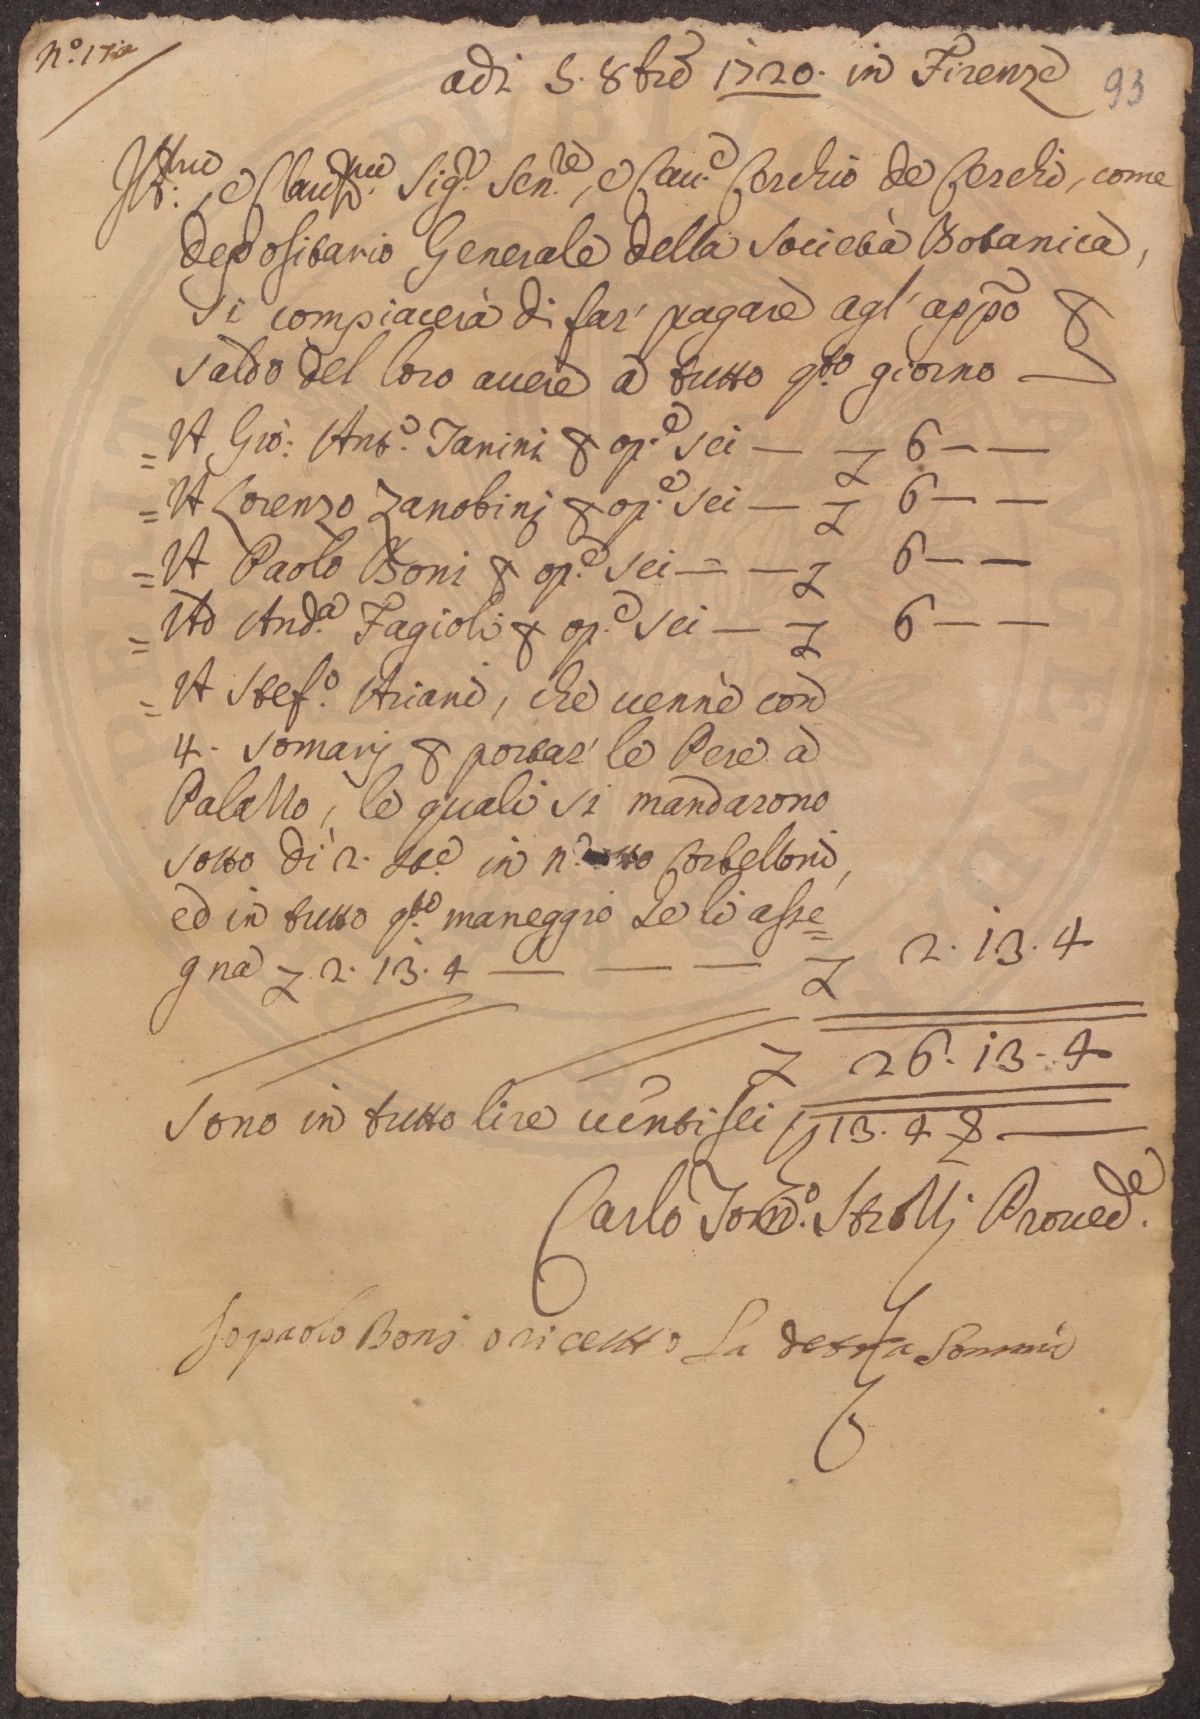 N.º 17
adi 5. 8bre 1720. in Firenze 93
Ill:mo, e Clariss.mo Sig.r Sen.re, e Cau.e Cerchio de Cerchi, come
depositario Generale della Società Botanica,
si compiacerà di far' pagare agl' appo p
saldo del loro auere a tutto q.to giorno —
= A Gio: Ant.o Janini p op.e sei — £ 6 — —
= A Lorenzo Zanobini p op.e sei — £ 6 — —
= A Paolo Boni p op.e sei — — £ 6 — —
= Ad And.a Fagioli p op.e sei — £ 6 — —
= A Stef.o Ariani, che uenne con
4. somarj p portar' le Pere a
Palazzo, le quali si mandarono
sotto dì 2. in n.o otto Corbelloni,
ed in tutto q.to maneggio se li asse=
gna £ 2. 13. 4 — — — £ 2. 13. 4
£ 26. 13. 4
Sono in tutto lire uentisei 13. 4 —
Carlo Tom.o Strozzj Proued.e
Jo paolo Bonj o riceuto La detta Somma